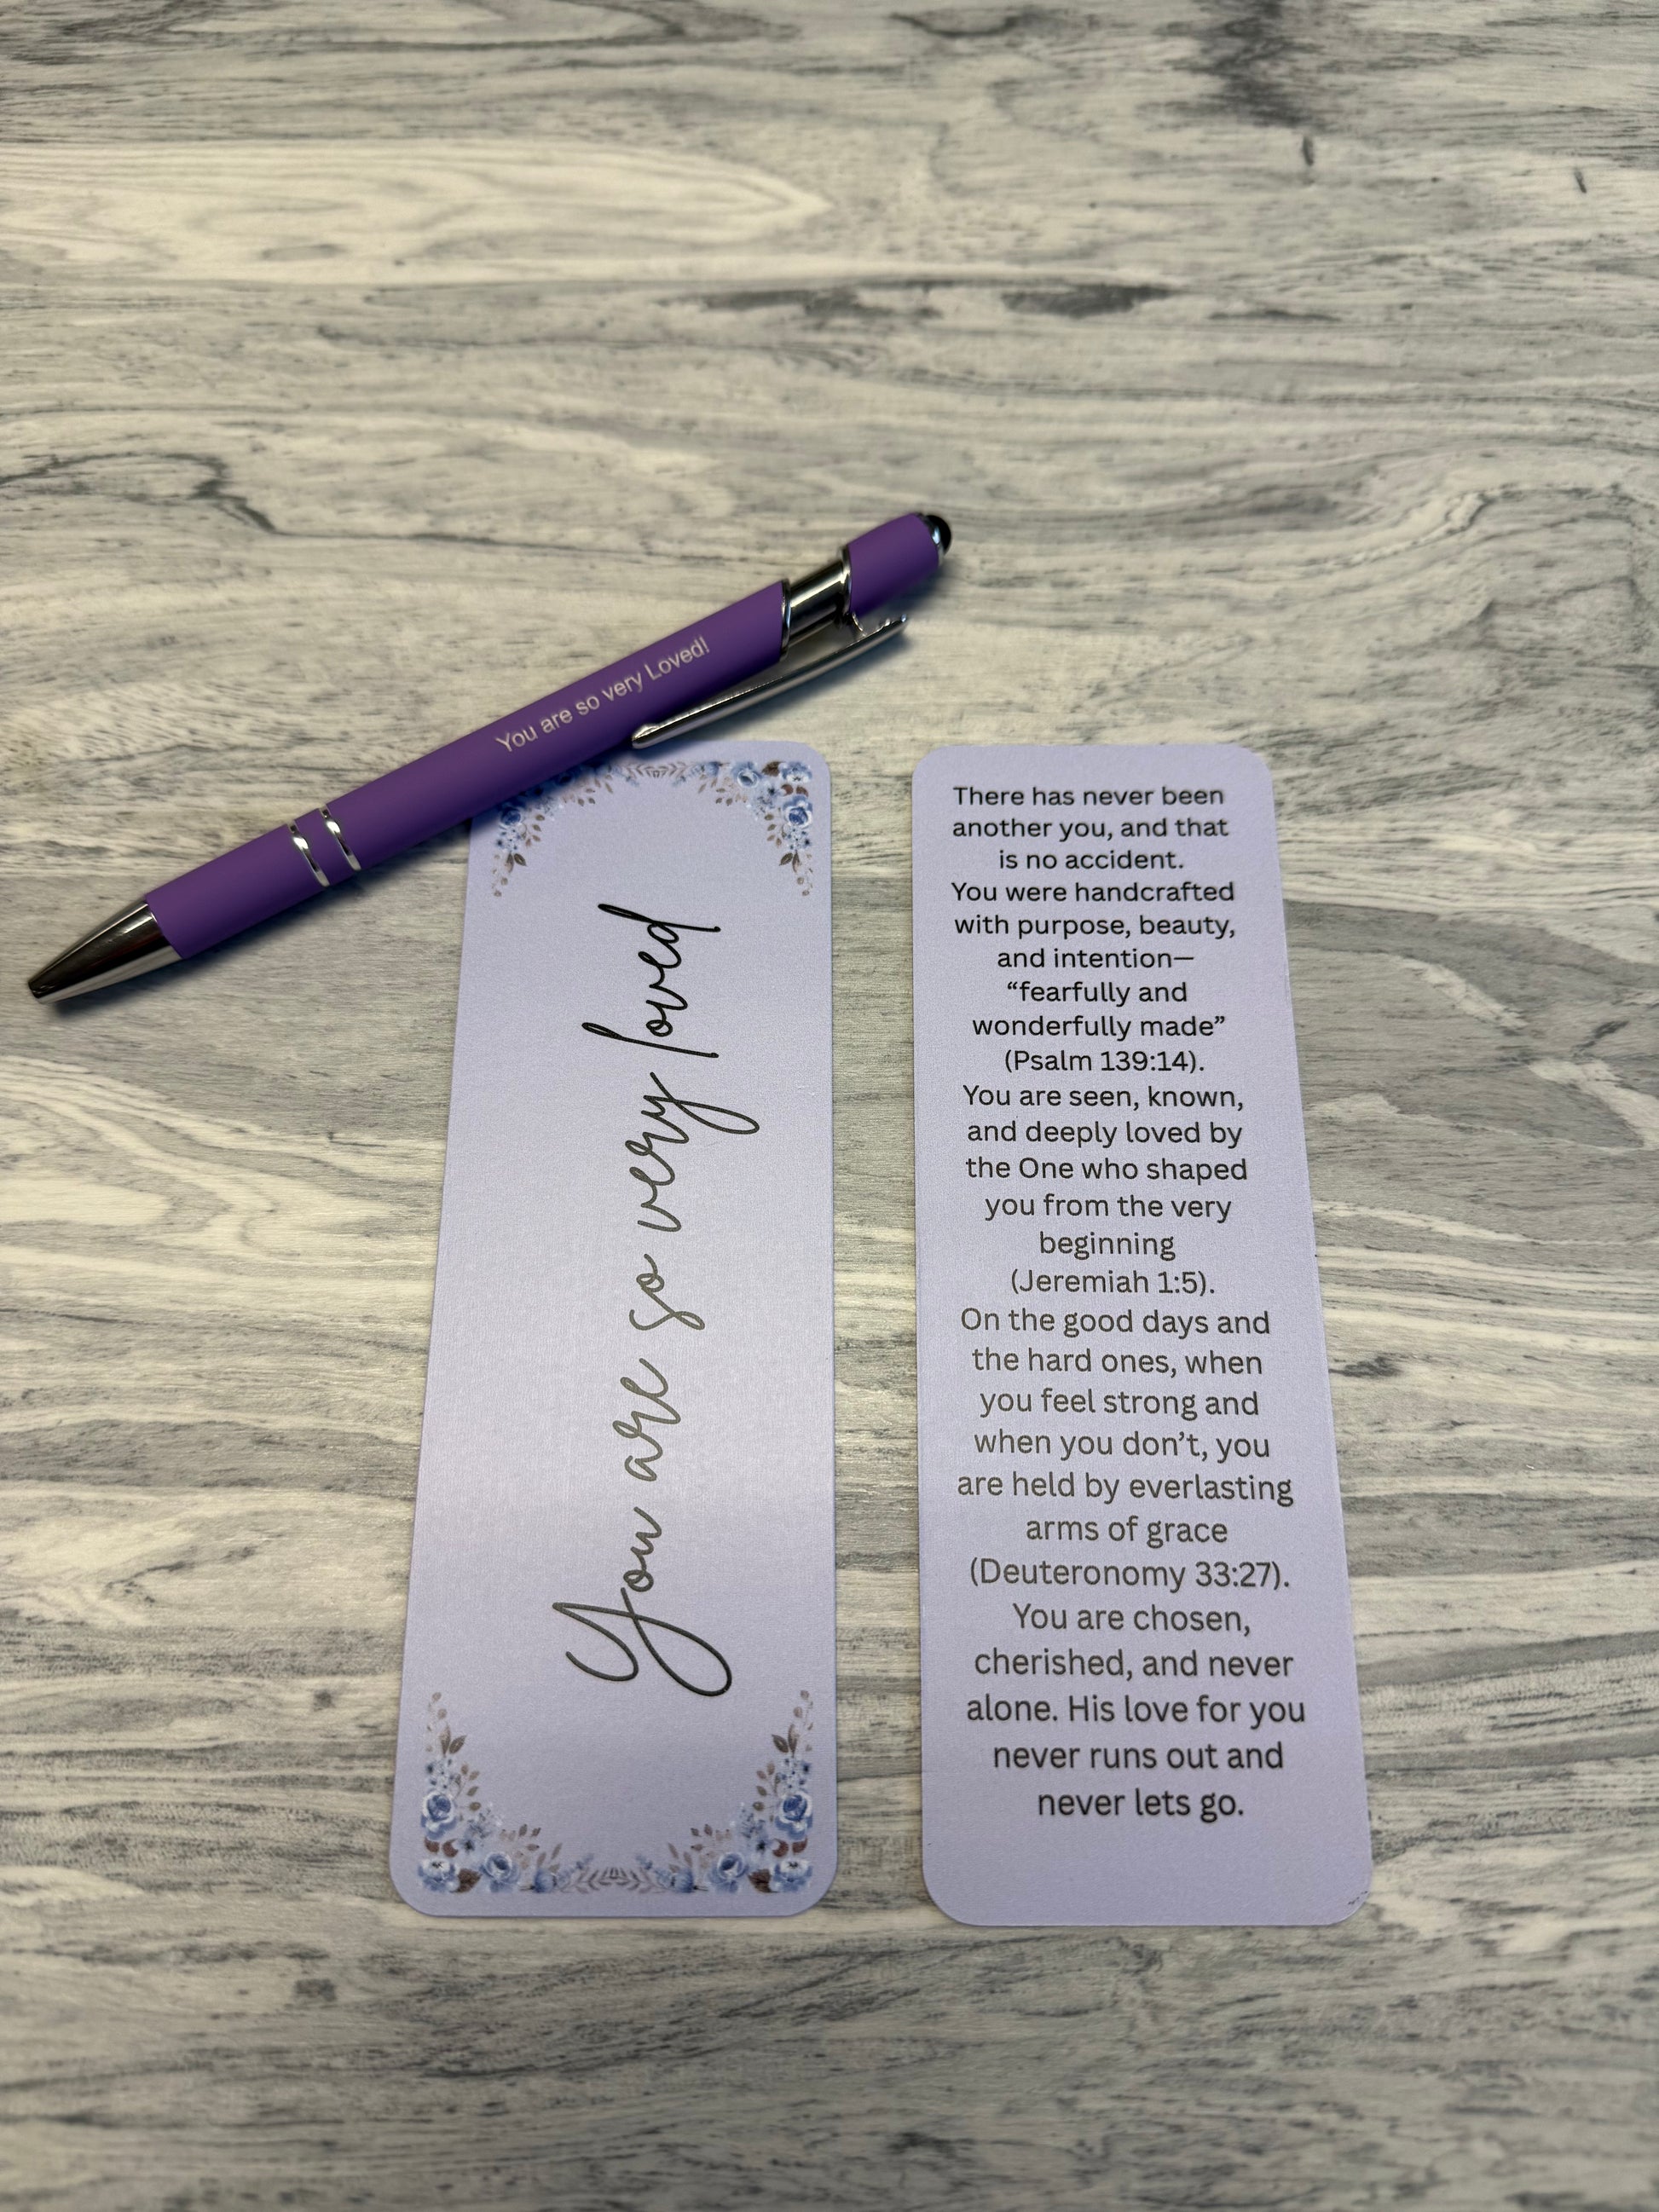 You are so very Loved!
You are so very loved
There has never been
another you, and that
is no accident.
You were handcrafted
with purpose, beauty,
and intention—
“fearfully and
wonderfully made”
(Psalm 139:14).
You are seen, known,
and deeply loved by
the One who shaped
you from the very
beginning
(Jeremiah 1:5).
On the good days and
the hard ones, when
you feel strong and
when you don’t, you
are held by everlasting
arms of grace
(Deuteronomy 33:27).
You are chosen,
cherished, and never
alone. His love for you
never runs out and
never lets go.